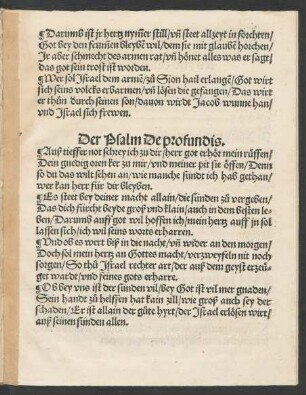 ¶Darumb ist jr hertz nym̃er still/ vn̄ steet allzeyt in forchten/
Got bey den frum̃en bleybẽ wil/ dem sie mit glaubẽ horchen/
Ir aber schmecht des armen rat/ vn̄ hönet alles was er sagt/
das got sein trost ist worden.
¶Wer sol Israel dem armẽ/ zů Sion hail erlangẽ/ Got wirt
sich seins volcks erbarmen/ vn̄ lösen die gefangen/ Das wirt
er thůn durch seinen son/ dauon wirdt Jacob wunne han/
vnd Israel sich frewen.
Der Psalm De profundis.
¶Auß tieffer not schrey ich zu dir/ herr got erhör mein růffen/
Dein gnedig oren ker zu mir/ vnd meiner pit sie öffen/ Denn
so du das wilt sehen an/ wie manche sündt ich hab gethan/
wer kan herr für dir bleyben.
¶Es steet bey deiner macht allain/ die sünden zů vergeben/
Das dich fürcht beyde groß vnd klain/ auch in dem besten le-
ben/ Darumb auff got wil hoffen ich/ mein hertz auff jn sol
lassen sich/ ich wil seins worts erharren.
¶Vnd ob es wert biß in die nacht/ vn̄ wider an den morgen/
Doch sol mein hertz an Gottes macht/ verzweyfeln nit noch
sorgen/ So thů Israel rechter art/ der auß dem geyst erzeu-
get wardt/ vnd seines gots erharre.
¶Ob bey vns ist der sünden vil/ bey Got ist vil mer gnaden/
Sein handt zů helffen hat kain zill/ wie groß auch sey der
schaden/ Er ist allain der gůte hyrt/ der Israel erlösen wirt/
auß seinen sünden allen.